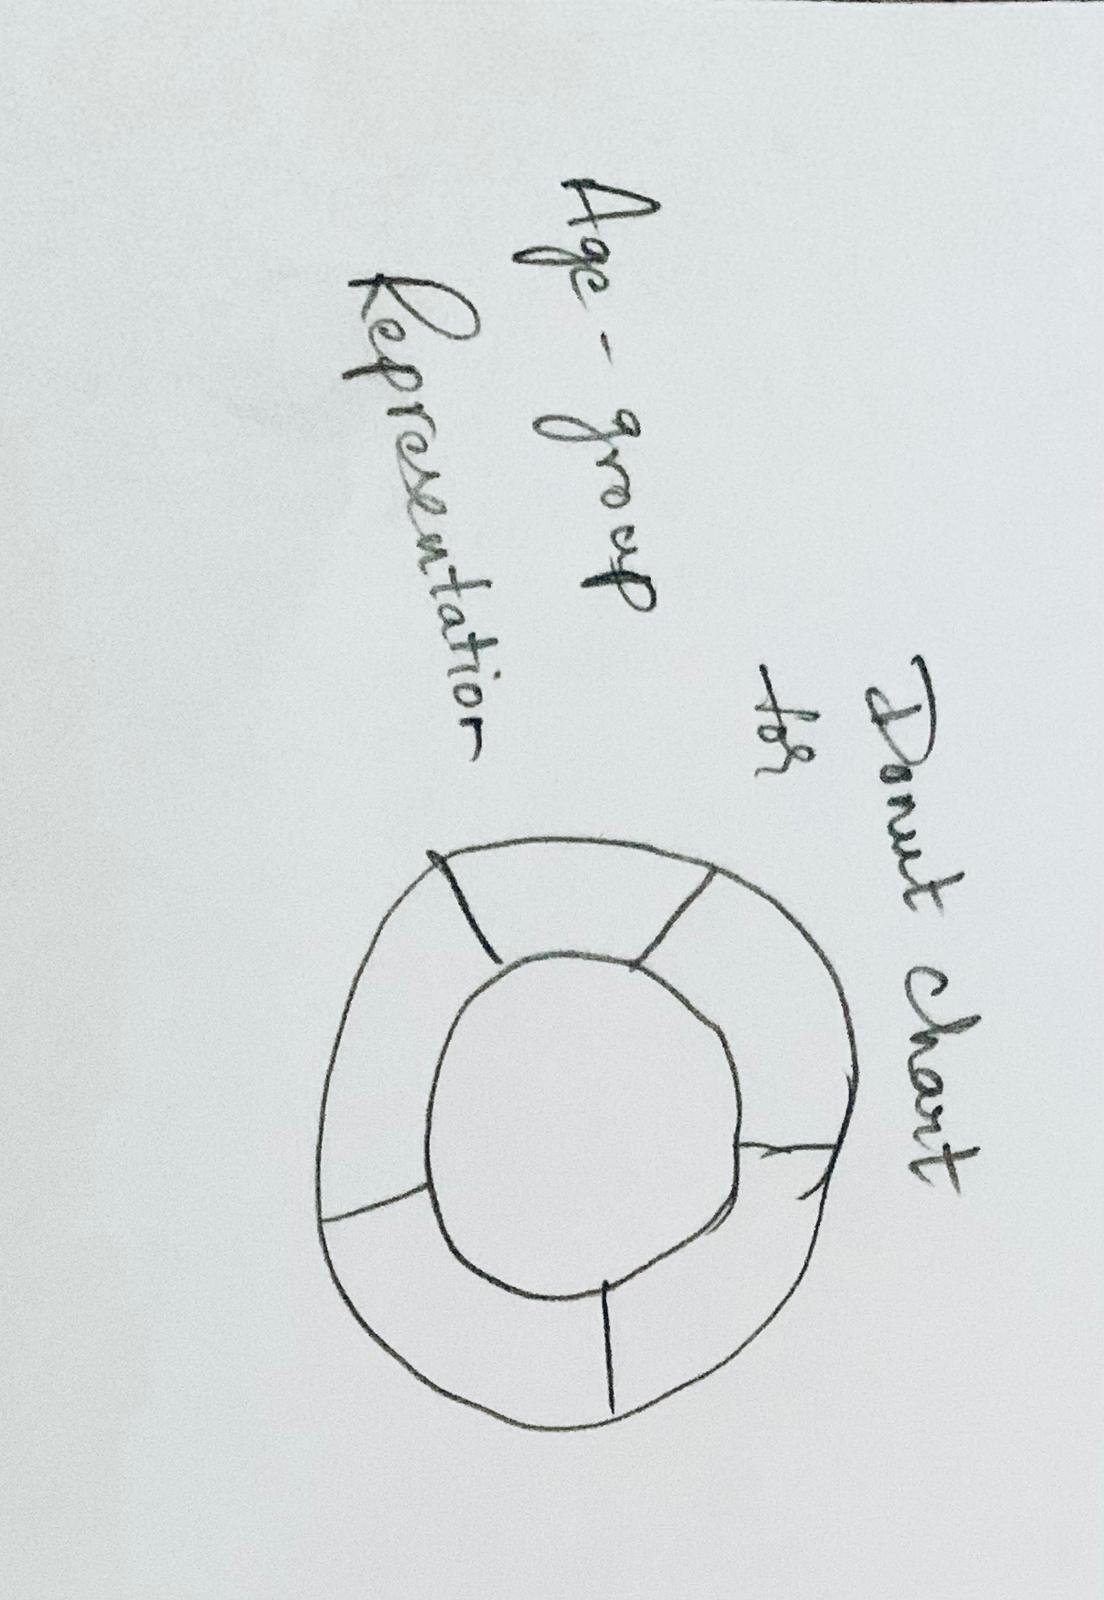 Donut chart
for
Age-group
Representation